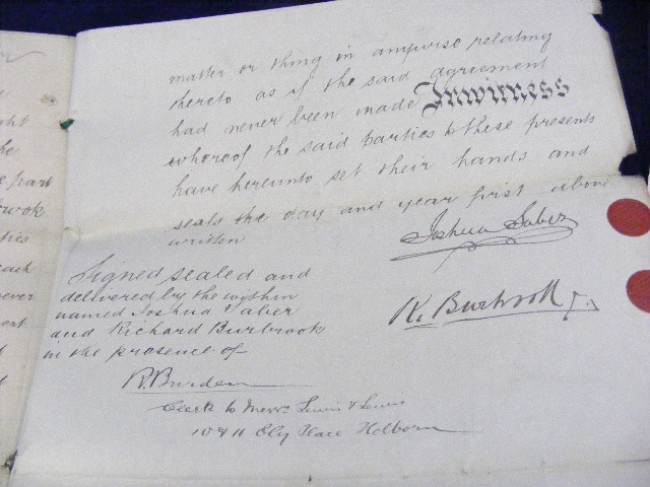 ght
he
e part
rook
ties
each
ever
matter or thing in anywise relating
thereto as if the said agreement
had never been made In witness
whereof the said parties to these presents
have hereunto set their hands and
seals the day and year first above
written
Joshua Taber
R. Burbrook
Signed sealed and
delivered by the within
named Joshua Taber
and Richard Burbrook
in the presence of
R. Burden
Clerk to Messrs Lewis & Lewis
10 & 11 Ely Place Holborn